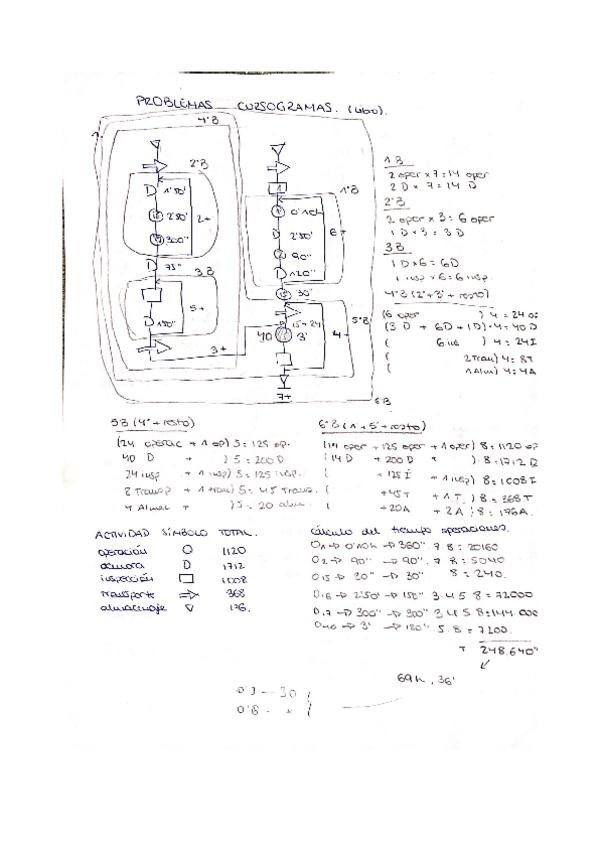 PROBLEMAS CURSOGRAMAS. (460).
4ºB
2ºB
1'50"
2'50"
300"
2+
75"
3B
5+
150"
3+
1
1ºB
0'10h
2'50"
90"
120"
6+
30"
15-24
40 3'
4-
5ºB
7+
6B
1B
2 oper x 7 = 14 oper
2 D x 7 = 14 D
2ºB
2 oper x 3 = 6 oper
1 D x 3 = 3 D
3B
1 D x 6 = 6D
1 insp x 6 = 6 insp.
4ºB (2º+3º+resto)
(6 oper ) 4 = 24 o
(3 D + 6D + 1D) · 4 = 40 D
( 6 ins ) 4 = 24I
( 2 Tran) 4 = 8T
( 1 Alm) 4 = 4A
5B (4º + resto)
(24 operac + 1 op) 5 = 125 op.
40 D + ) 5 = 200 D
24 insp + 1 insp) 5 = 125 insp.
8 Transp + 1 tran) 5 = 45 Trans.
4 Almac + ) 5 = 20 alm.
6ºB (1 + 5º + resto)
(14 oper + 125 oper + 1 oper) 8 = 1120 op
(14 D + 200 D + ) 8 = 1712 D
( +125 I + 1 insp) 8 = 1008 I
( +45T + 1 T ) 8 = 368 T
( +20A + 2A ) 8 = 176A.
ACTIVIDAD SÍMBOLO TOTAL.
operación O 1120
demora D 1712
inspección □ 1008
transporte ⇒ 368
almacenaje ▽ 176.
cálculo del tiempo operaciones.
O1 → 0'10h → 360" · 7 8 = 20160
O2 → 90" → 90" · 7 8 = 5040
O15 → 30" → 30" 8 = 240.
O16 → 2'50" → 150" 3 4 5 8 = 72000
O17 → 300" → 300" 3 4 5 8 = 144.000
O40 → 3' → 180" 5 · 8 = 7200.
T 248.640"
69h, 36'